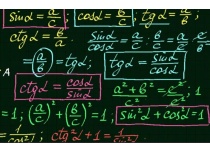 sin α = a/c; cos α = b/c; tg α = a/b;
ctg α = b/a sin α/cos α = a/c : b/c = a/c · c/b
= (a/b) = tg α; tg α = sin α/cos α
A ctg α = cos α/sin α a² + b² = c²; 1
= 1; (a/c)² + (b/c)² = 1; sin² α + cos α = 1
1/cos² α; ctg² α + 1 =